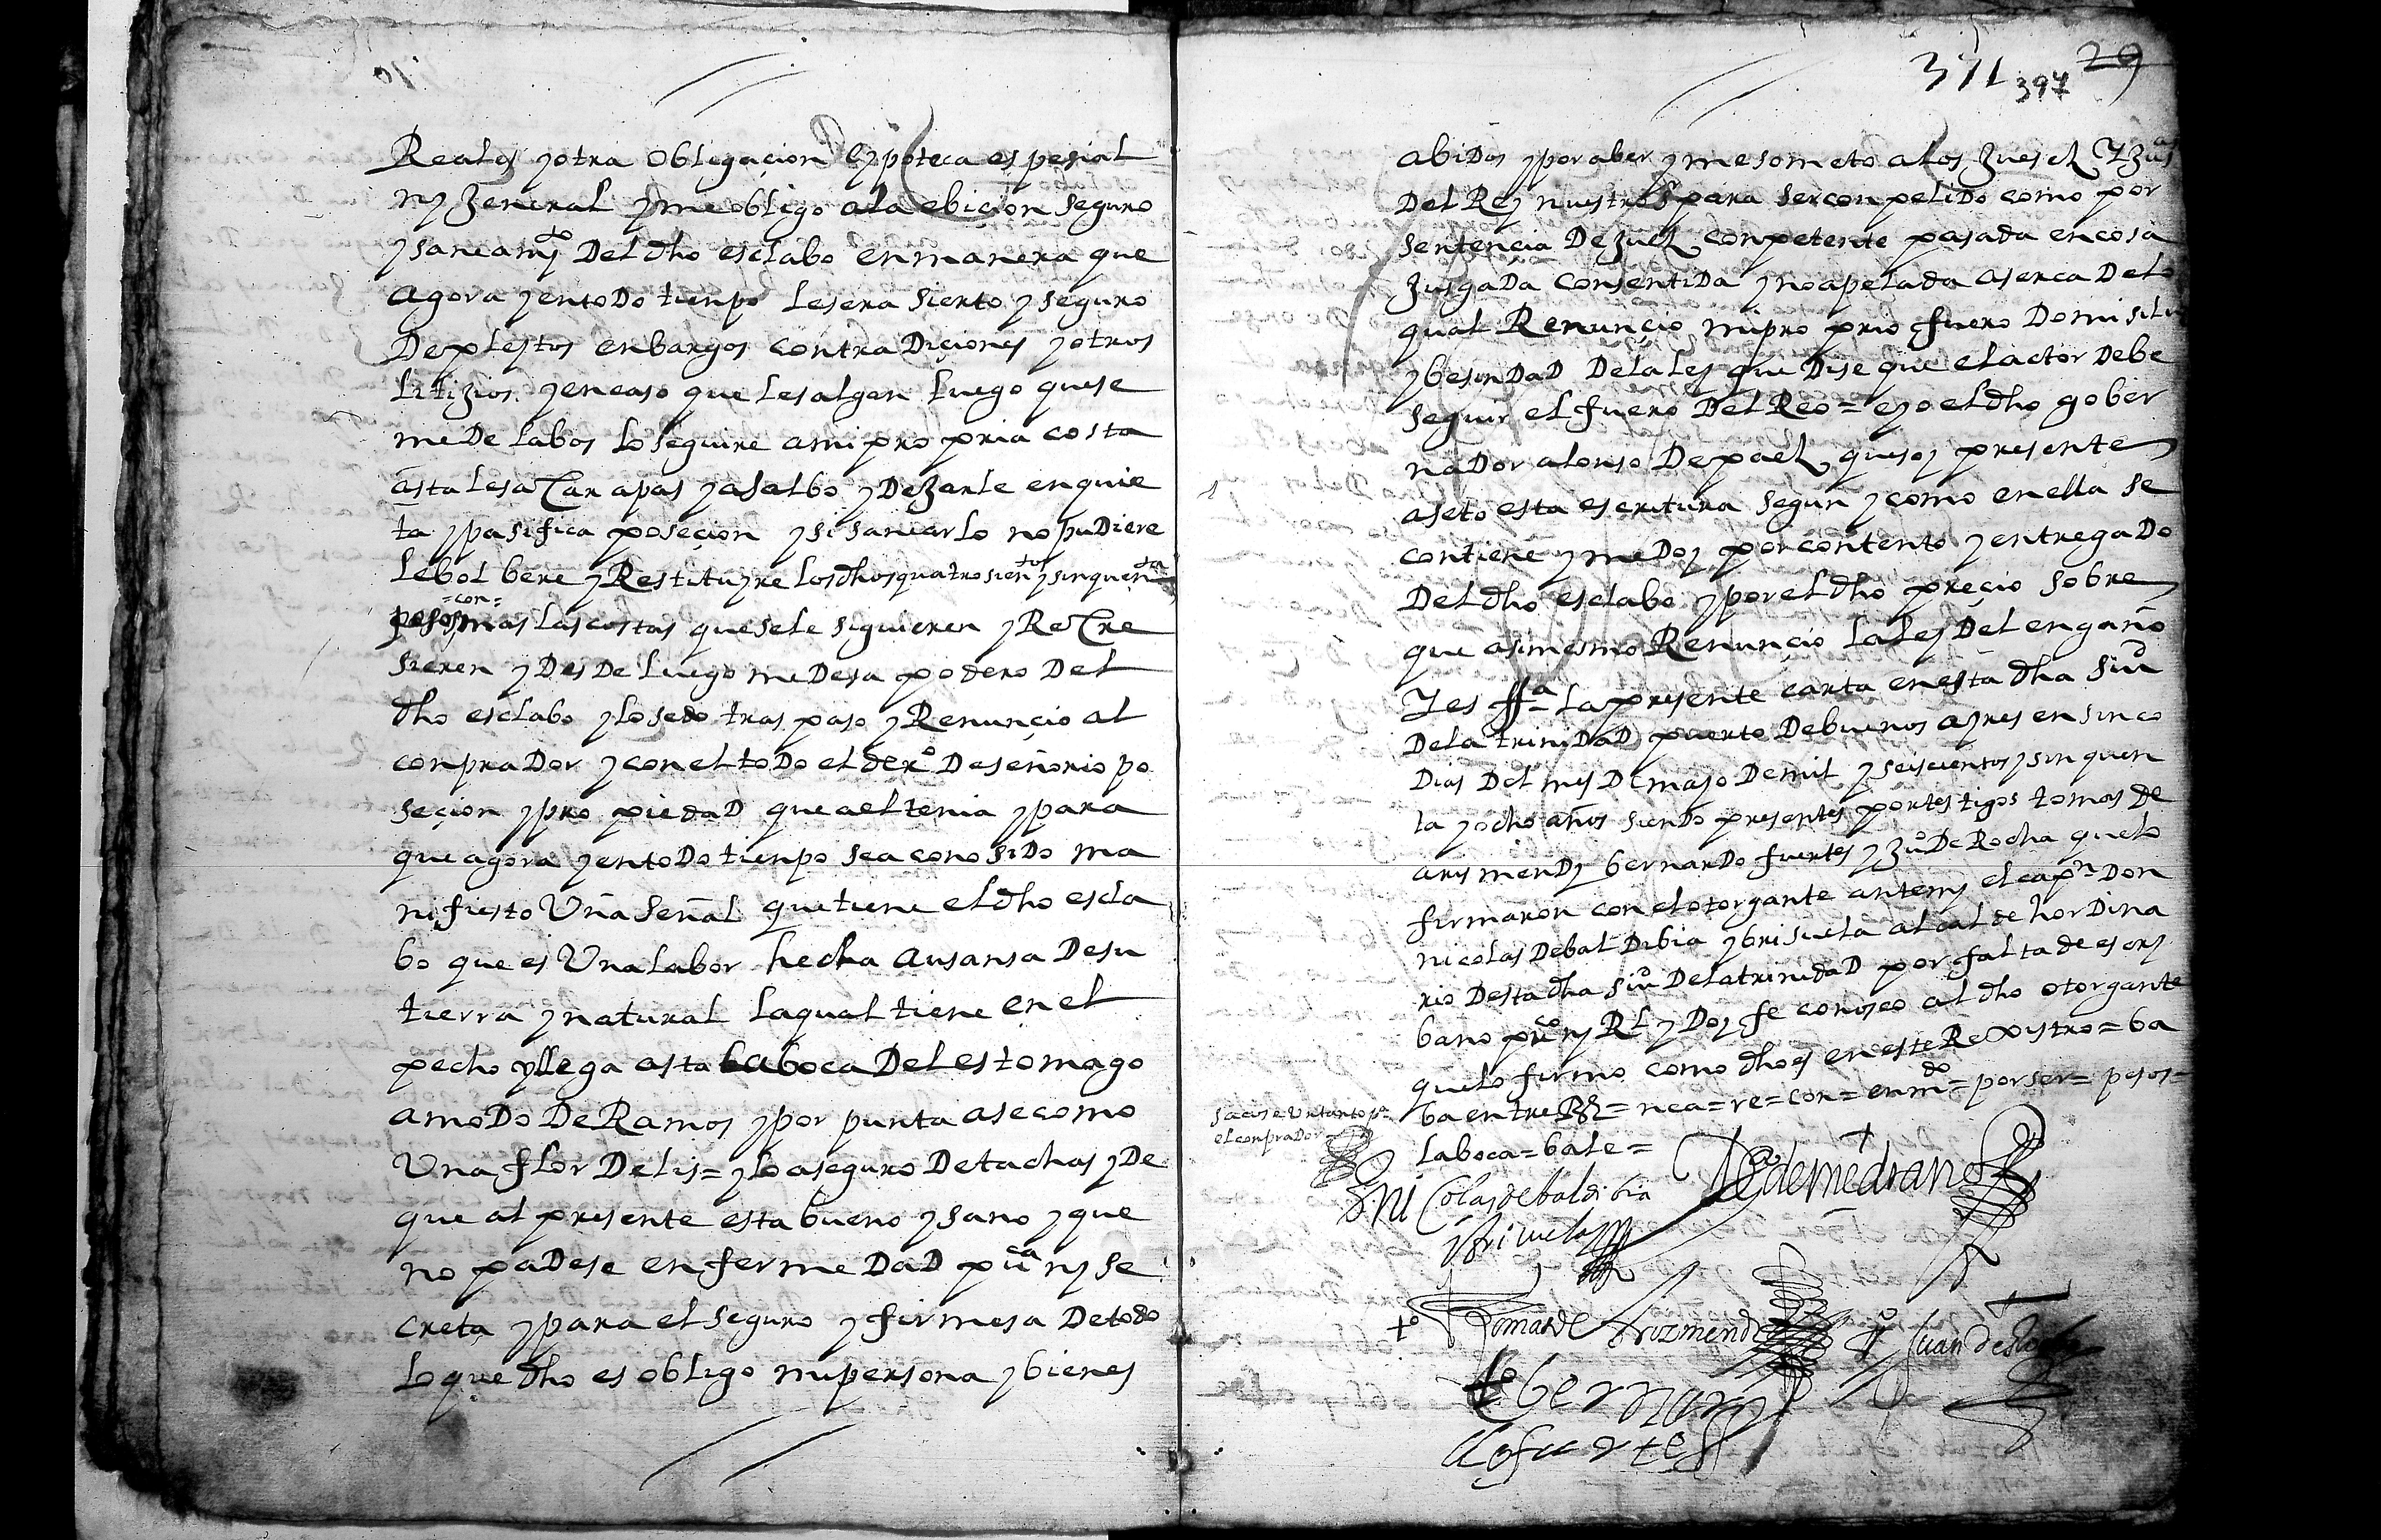 Reales y otra obligaçion eypoteca espesial
ny Jeneral y me obligo a la ebiçion seguro
y saneamyto Del dho esclabo en manera que
agora y en toDo tienpo le sera sierto y seguro
De pleytos enbargos contraDiçiones y otros
litijios y en caso que le salgan luego que se
me De labos lo seguire a mi propria costa
asta le sacar a pas y a salbo y Dejarle en quie
ta y pasifica poseçion y si sanearlo no puDiere
le bolbere y Restituyre los dhos quatrosientos y sinquenta
=con=
pesos mas las costas que se le siguieren y Recre
sieren y DesDe luego me Desapodero Del
dho esclabo y lo sedo traspaso y Renunçio al
conpraDor y con el toDo el dero De señorio po
seçion y propiedaD que a el tenia y para
que agora y en toDo tienpo sea conosiDo ma
nifiesto Una señal que tiene el dho escla
bo que es Una labor hecha a usansa De su
tierra y natural la qual tiene en el
pecho y llega asta la boca Del estomago
a moDo De Ramos y por punta a se como
Una flor De lis= y lo aseguro De tachas y De
que al presente esta bueno y sano y que
no paDese enfermeDaD puca ny se
creta y para el seguro y firmesa De todo
lo que dho es obligo mi persona y bienes
371 397 29
abiDos y por aber y me someto a los Juesez Y Juas
Del Rey nuestro S para ser conpeliDo como por
sentençia De Juez conpetente pasada en cosa
JusgaDa consentiDa y no apelada aserca De lo
qual Renunçio mi proprio fuero Domisilio
y besinDaD De la ley que Dise que el actor Debe
seguir el fuero Del Reo = e yo el dho gober
naDor alonso De paez que soy presente
aseto esta escritura segun y como en ella se
contiene y me Doy por contento y entregaDo
Del dho esclabo y por el dho preçio sobre
que asimesmo Renunçio la ley Del engaño
Y es ffa la presente carta en esta dha siud
De la triniDaD puerto De buenos ayres en sinco
Dias Del mes De mayo De mil y seiscientos y sinquen
ta y ocho años sienDo presentes por testigos tomas de
arysmenDy bernarDo fuertes y Juo De Rocha que lo
firmaron con el otorgante ante my el capn Don
nicolas De balDibia y brisuela alcalde horDina
rio Desta dha siud De la trinidaD por falta de escri
bano puco ny Rl y Doy fe conosco al dho otorgante
que lo firmo como dho es en este Rexistro = ba
ba entre Rs = nea = re = con = enmdo = por ser = pesos =
la boca = bale =
sacose Un tanto pa
el conpraDor
Ni Colas de baldibia
y brisuela
P de medrano
to Tomas de Arizmendi
to Juan de Rocha
to bernar
do fuertes